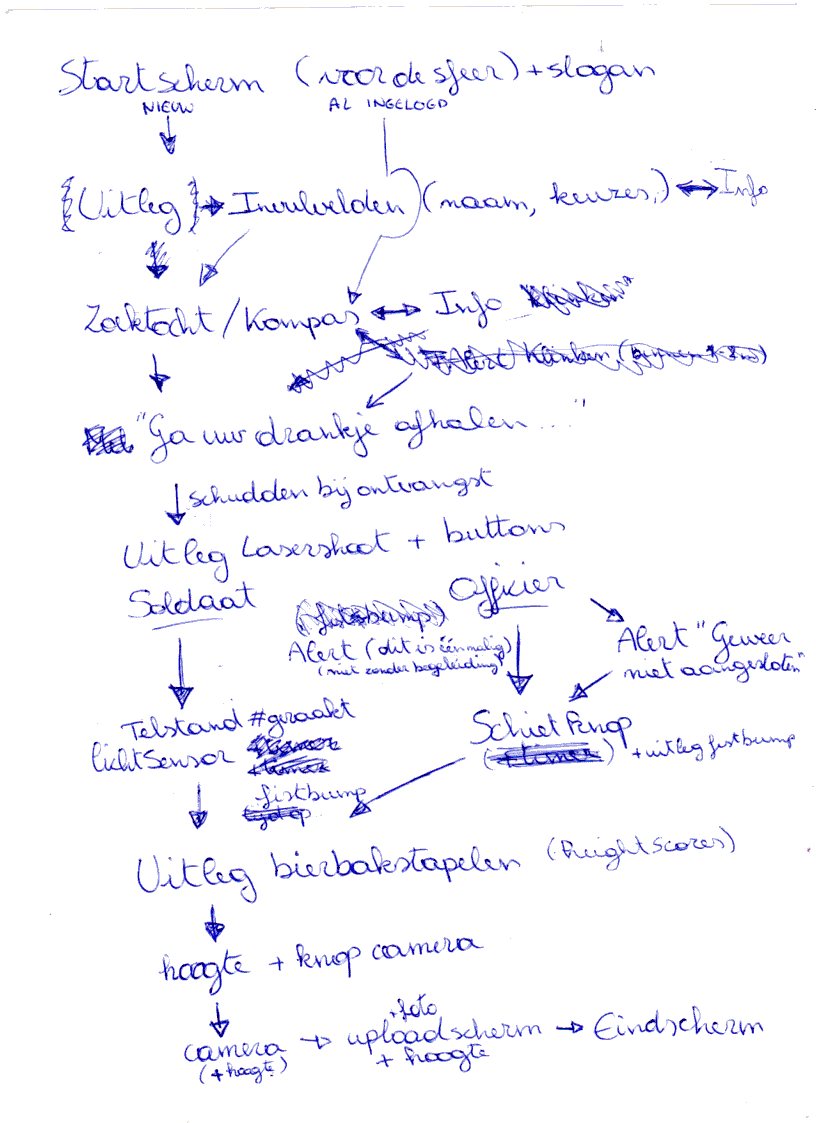 Startscherm (voor de sfeer) + slogan
NIEUW AL INGELOGD
{Uitleg} → Invulvelden (naam, keuzes,) ↔ Info
Zoktocht / Kompas ↔ Info
+ Alert Klinken
"Ga uw drankje afhalen..."
schudden bij ontvangst
Uitleg Lasershoot + buttons
Soldaat Officier
(fistbump)
Alert (dit is éénmalig)
(niet zonder begeleiding)
Alert "Geweer
niet aangesloten"
Telstand #geraakt
lichtSensor timer
+ timer
fistbump
tijd op
Schietknop
(+ timer) + uitleg fistbump
Uitleg bierbakstapelen (heightscores)
hoogte + knop camera
camera → uploadscherm → Eindscherm
+ foto
(+ hoogte) + hoogte